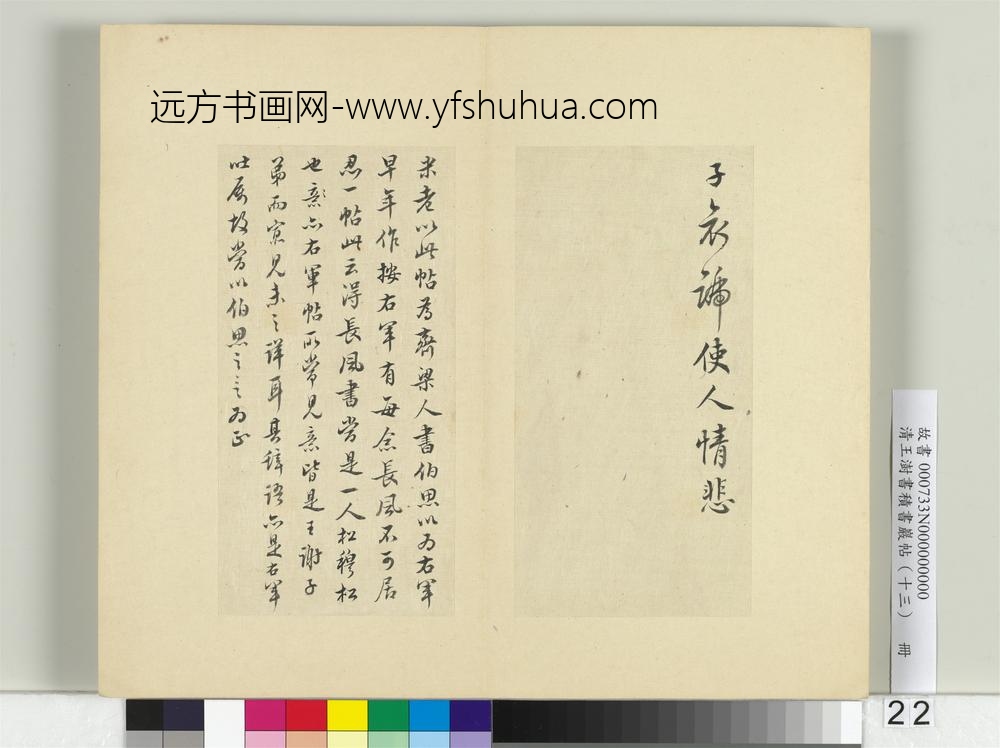 远方书画网-www.yfshuhua.com
子哀號使人情悲
米老以此帖為齊梁人書伯思以為右軍
早年作按右軍有每念長風不可居
忍一帖此云得長風書當是一人松穆松
也意亦右軍帖所常見意皆是王謝子
弟而寔見未之詳耳其辭語亦是右軍
吐屬故當以伯思之言為正
故書 000733N000000000
清王澍書積書巖帖（十三） 冊
22